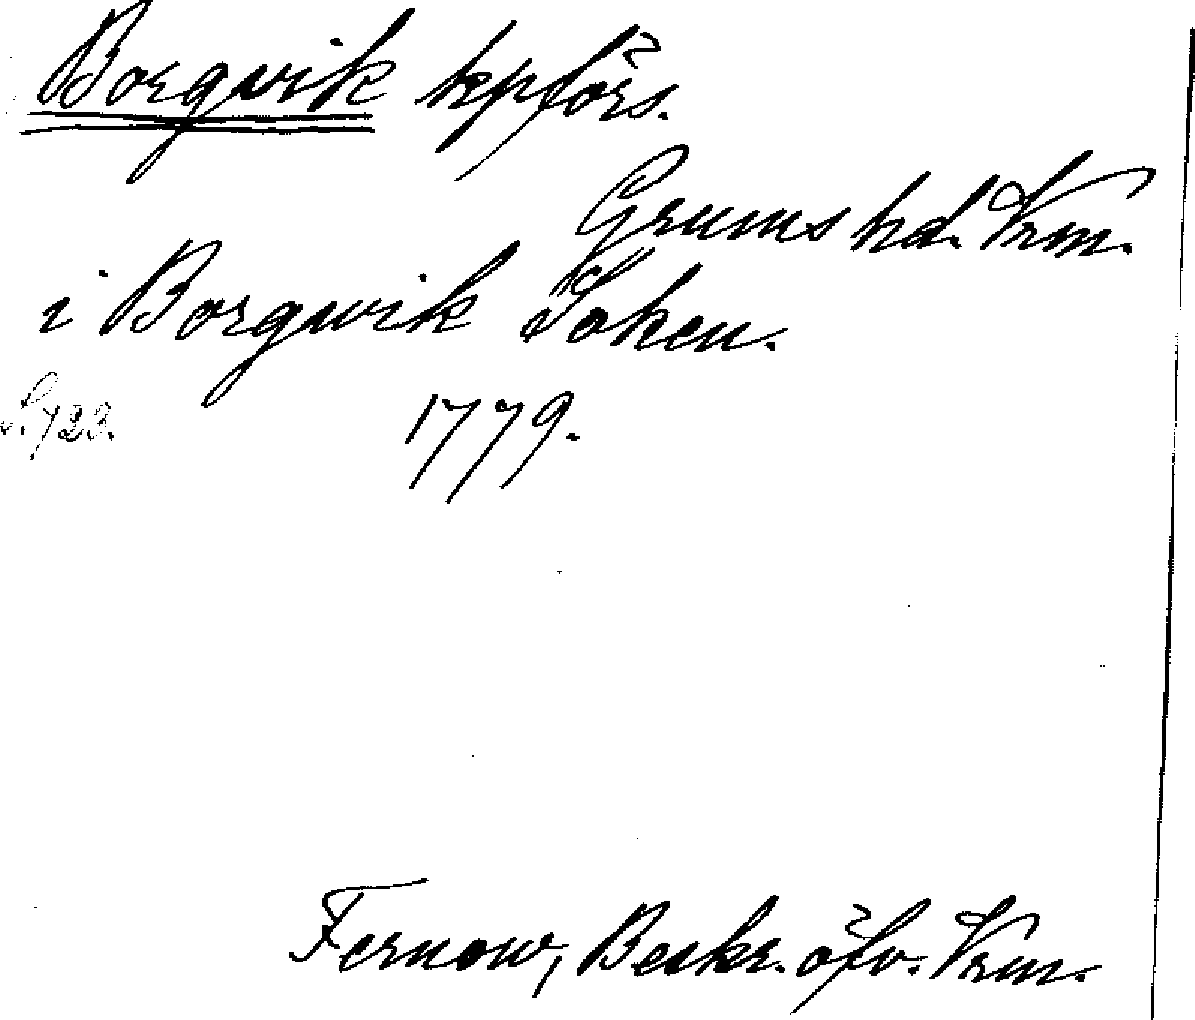 Borgvik kpförs.
Grums hd. Vrm.
i Borgwik Soken.
S. 723. 1779.
Fernow, Beskr. öfv. Vrm.